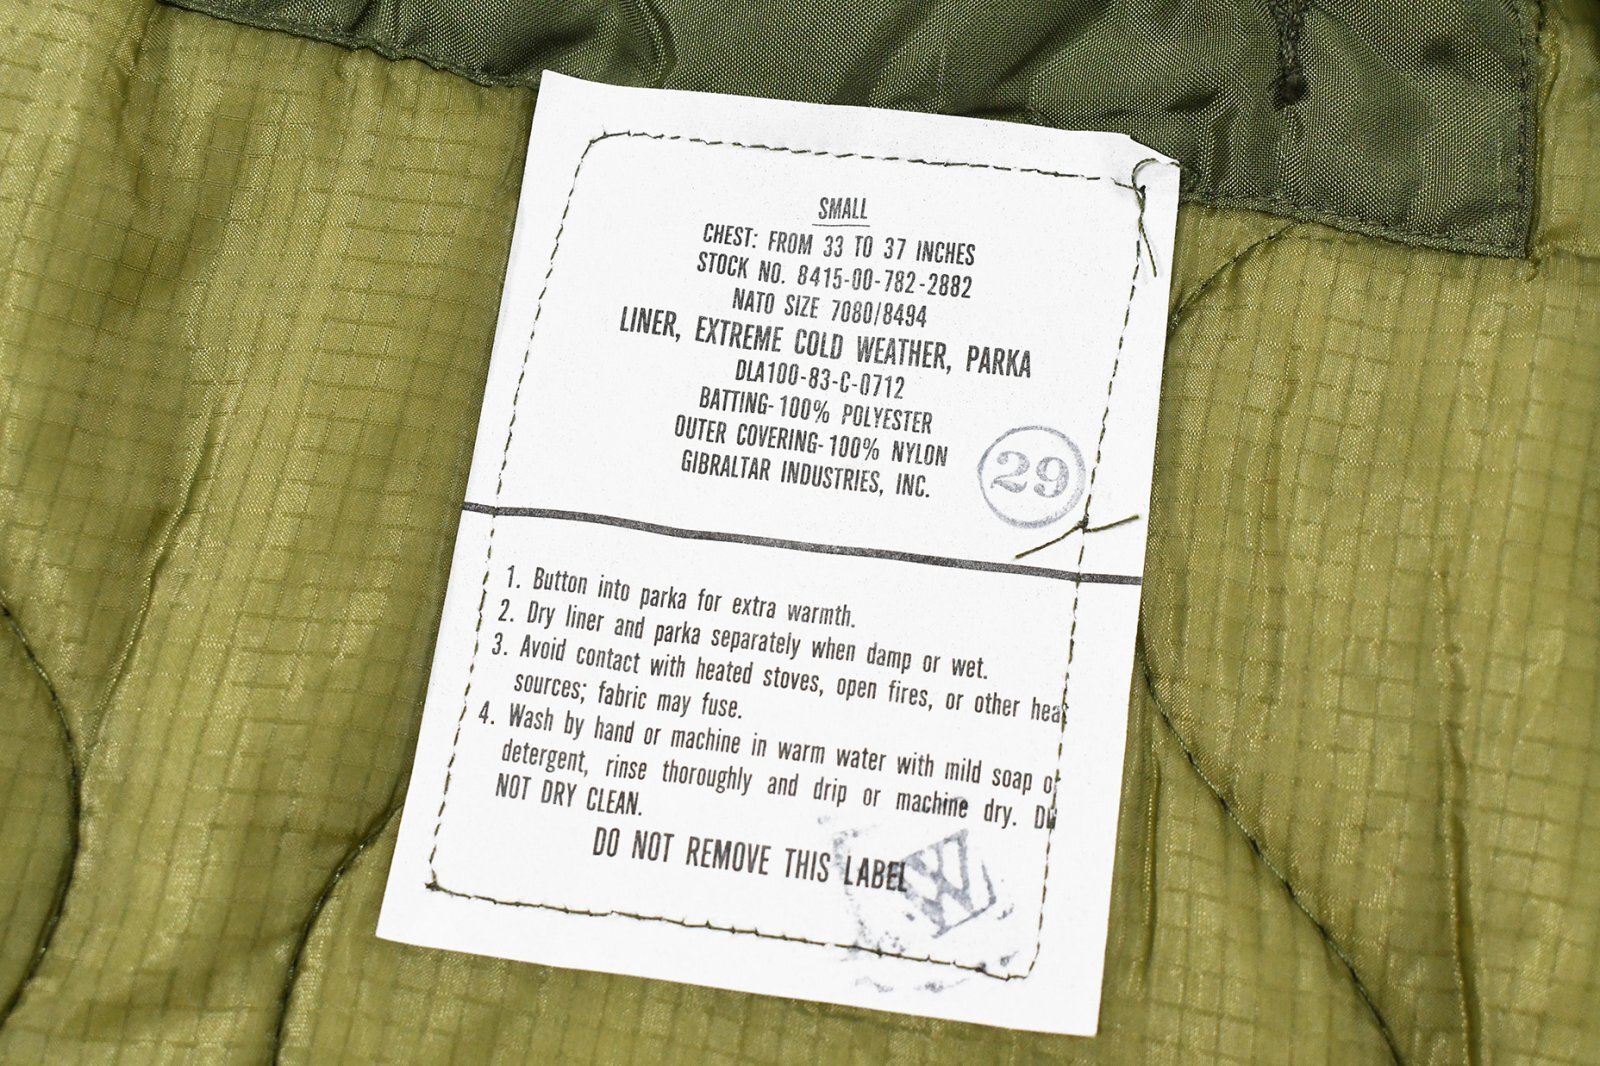 SMALL
CHEST: FROM 33 TO 37 INCHES
STOCK NO. 8415-00-782-2882
NATO SIZE 7080/8494
LINER, EXTREME COLD WEATHER, PARKA
DLA100-83-C-0712
BATTING-100% POLYESTER
OUTER COVERING-100% NYLON
GIBRALTAR INDUSTRIES, INC.
29
1. Button into parka for extra warmth.
2. Dry liner and parka separately when damp or wet.
3. Avoid contact with heated stoves, open fires, or other heat
sources; fabric may fuse.
4. Wash by hand or machine in warm water with mild soap or
detergent, rinse thoroughly and drip or machine dry. DO
NOT DRY CLEAN.
DO NOT REMOVE THIS LABEL
W